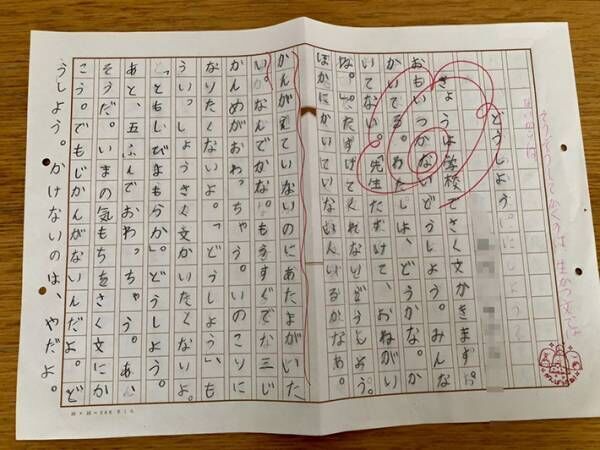 どうしよう。
きょうは学校でさく文かきます。
おもいつかないどうしよう。みんな
かいてる。わたしは、どうかな。か
いてない。「先生たすけて、おねがい
ね。」。たすけてくれないどうしよう。
ほかにかいていない人いるかなあ。
かんがえていないのにあたまがいた
い。なんでかな。もうすぐで三じ
かんめがおわっちゃう。いのこりに
なりたくないよ。「どうしよう」、も
ういっしょうさく文かいたくないよ。
どうしよう。
あと、五ふんでおわっちゃう。あ、
そうだ。いまの気もちをさく文にか
こう。でもじかんがないんだよ。ど
うしよう。かけないのは、やだよ。